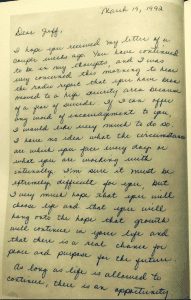 March 19, 1992
Dear Jeff,
I hope you received my letter of a
couple weeks ago. You have continued
to be in my thoughts, and I was
very concerned this morning to hear
the radio report that you have been
moved to a high security area because
of a fear of suicide. If I can offer
any word of encouragement to you,
I would like very much to do so.
I have no idea what the circumstances
are which you face every day or
what you are working with
internally. I'm sure it must be
extremely difficult for you, but
I very much hope that you will
choose life and that you will
hang onto the hope that growth
will continue in your life and
that there is a real chance for
peace and purpose for the future.
As long as life is allowed to
continue, there is an opportunity